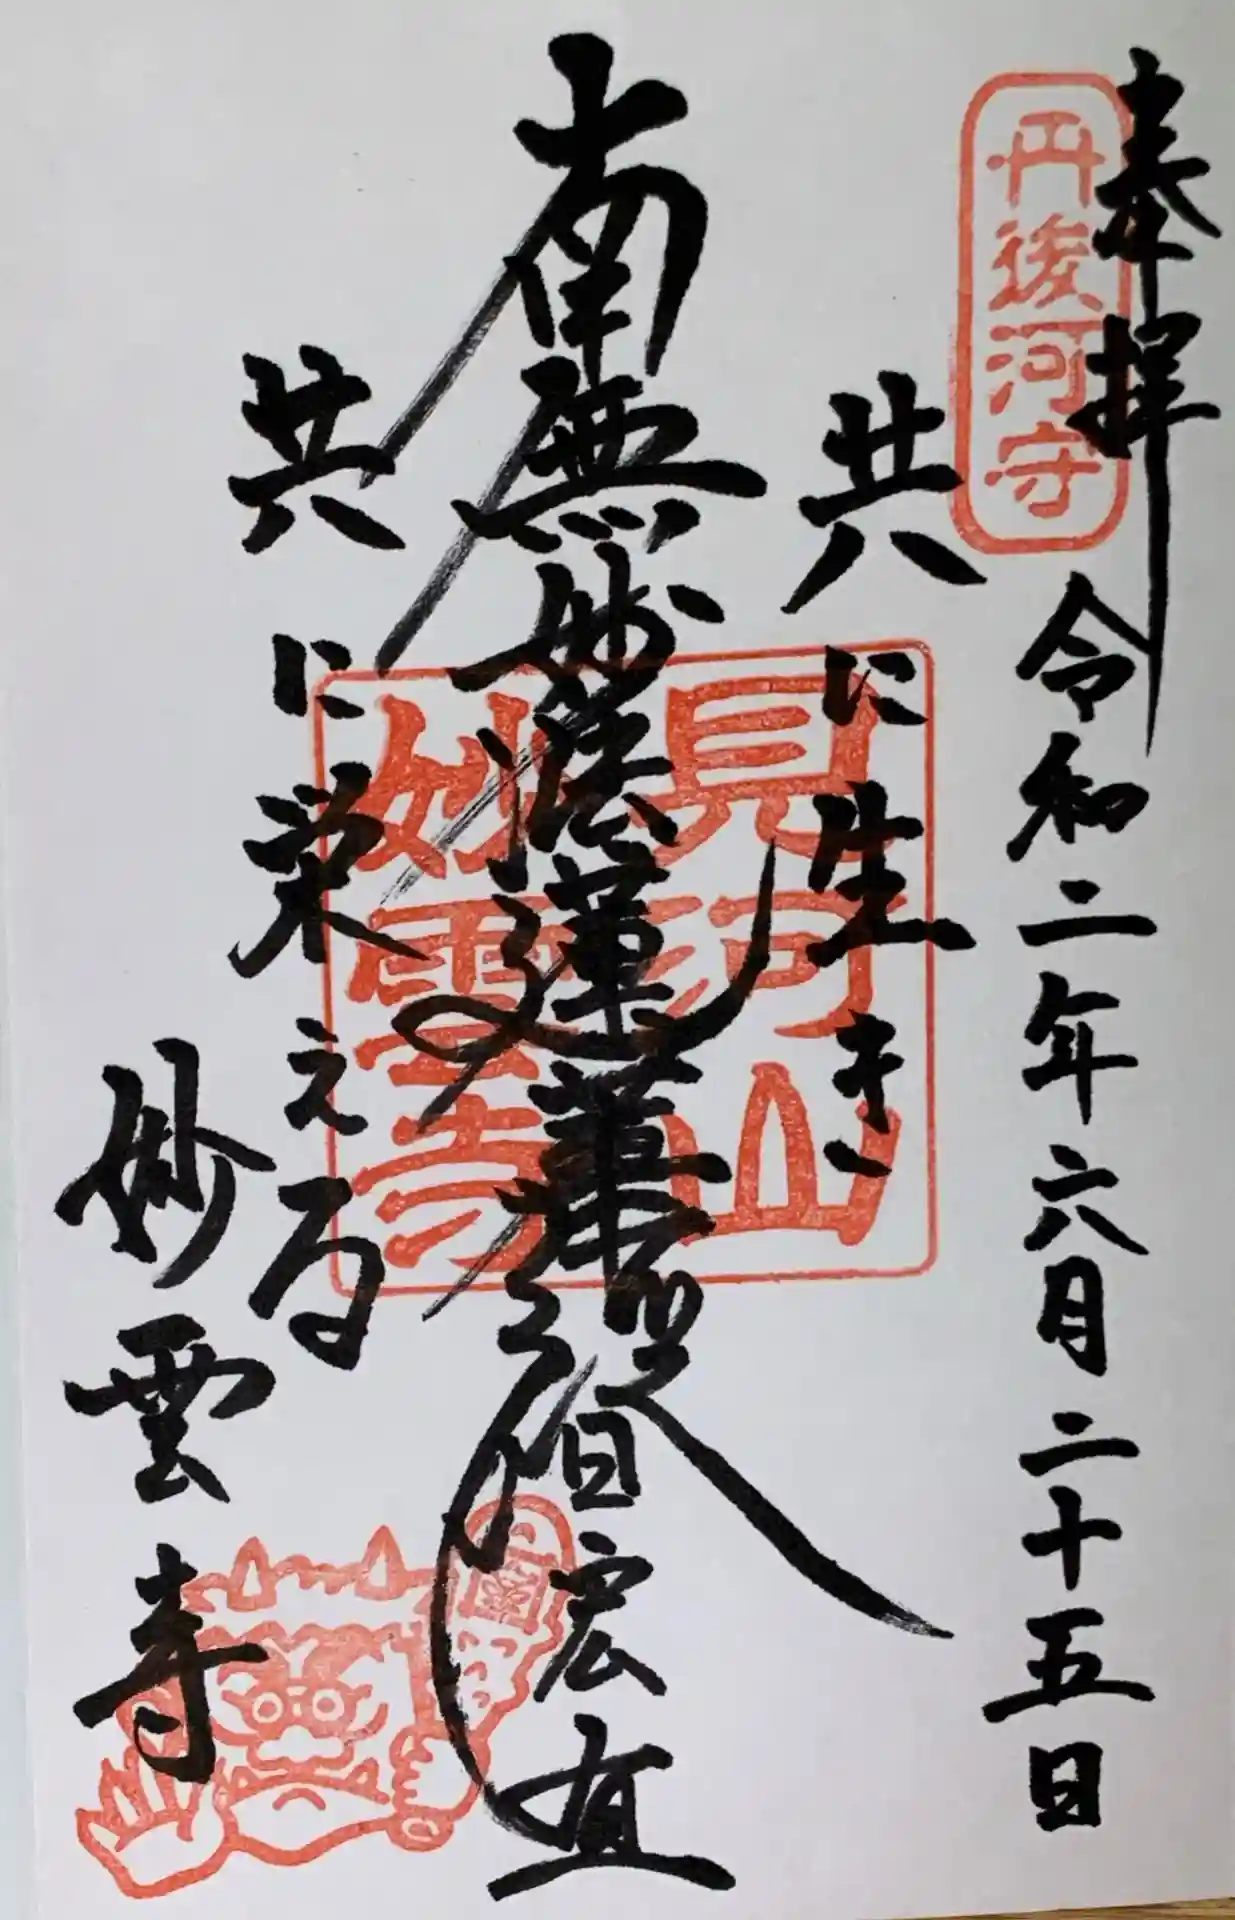 奉拝
丹後河守
令和二年六月二十五日
共に生き
南無妙法蓮華経 日宏
見河山
妙雲寺
共に栄える
妙雲寺